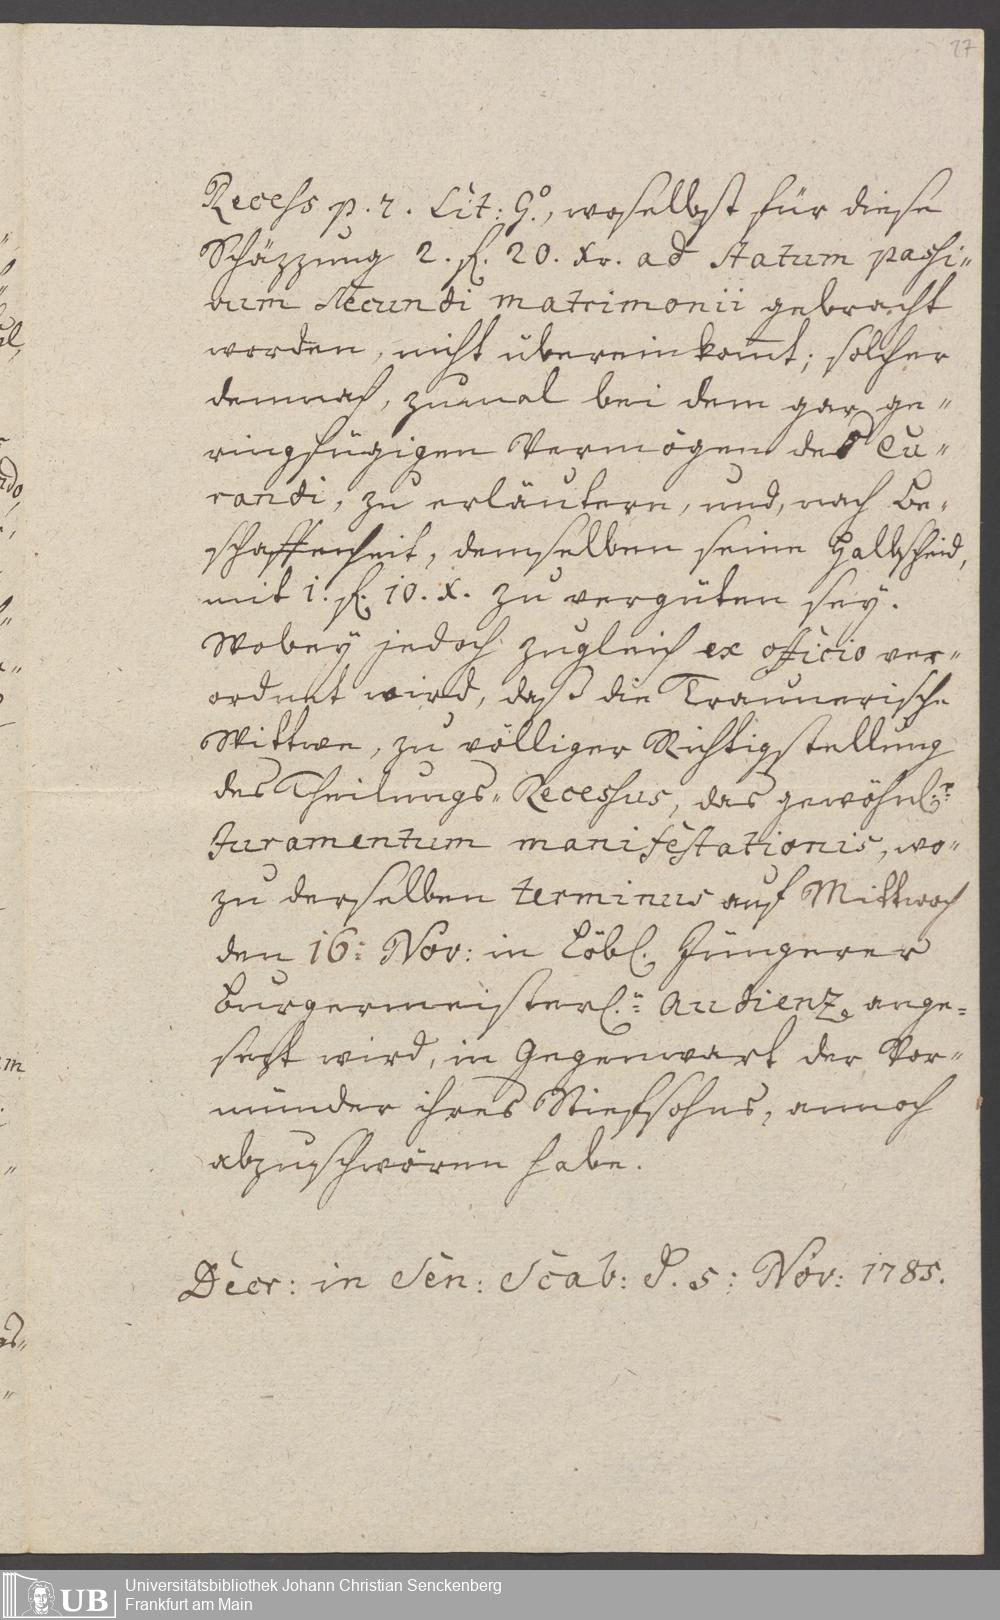 27
Recess p. 2. Lit: G°., woselbst für diese
Schäzzung 2. fl. 20. Xr. ad statum passi-
vum secundi matrimonii gebracht
worden, nicht übereinkomt; solcher
demnach, zumal bei dem gar ge-
ringfügigen Vermögen des Cu-
randi, zu erläutern, und, nach Be-
schaffenheit, demselben seine Halbscheid,
mit 1. fl. 10. X. zu vergüten sey.
Wobey jedoch zugleich ex officio ver-
ordnet wird, daß die Traunerische
Wittwe, zu völliger Richtigstellung
des Theilungs-Recessus, das gewöhnl:e
Juramentum manifestationis, wo-
zu derselben terminus auf Mittwoch
den 16: Nov: in Löbl. Jüngerer
Burgermeisterl.n Audienz, ange-
sezt wird, in Gegenwart der Vor-
münder ihres Stiefsohns, annoch
abzuschwören habe.
Decr: in Sen: Scab: d. 5: Nov: 1785.
UB
Universitätsbibliothek Johann Christian Senckenberg
Frankfurt am Main